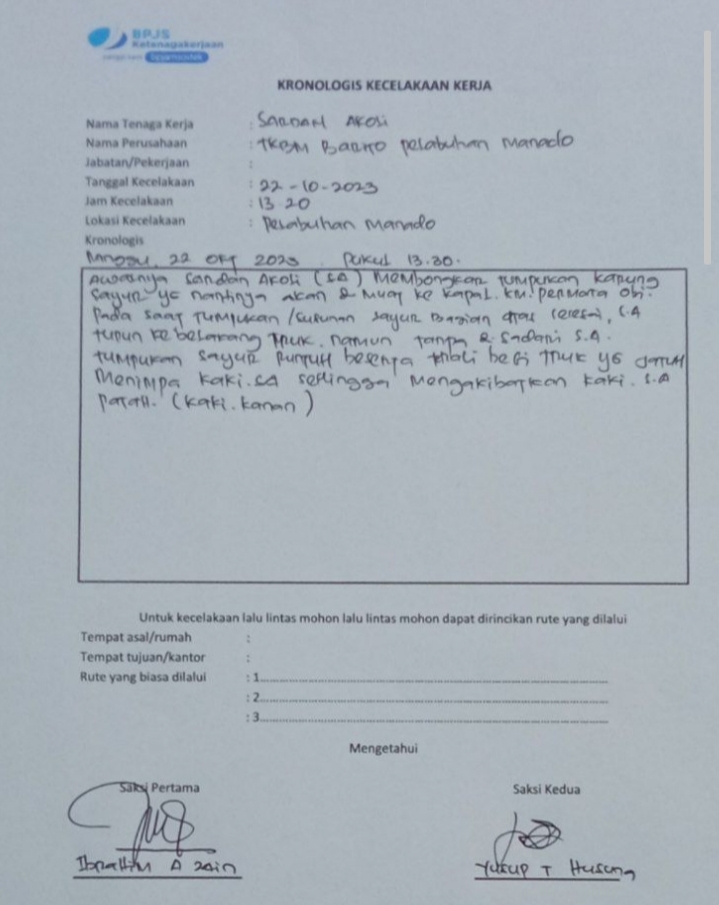 BPJS
Ketenagakerjaan
KRONOLOGIS KECELAKAAN KERJA
Nama Tenaga Kerja : SARDAN AKOSI
Nama Perusahaan : TKBM BARITO pelabuhan Manado
Jabatan/Pekerjaan :
Tanggal Kecelakaan : 22-10-2023
Jam Kecelakaan : 13.20
Lokasi Kecelakaan : Pelabuhan Manado
Kronologis
Minggu, 22 Okt 2023 Pukul 13.30.
Awalnya Sardan Akosi (SA) Membongkar Tumpukan Karung
Sayur yg nantinya akan di Muat ke Kapal. KM. Permata Obi.
Pada saat Tumpukan / susunan sayur Bagian atas selesai, S.A
turun ke belakang Truk. namun tanpa di Sadari S.A.
tumpukan sayur Runtuh beserta besi Truk yg Jatuh
Menimpa kaki. SA sehingga Mengakibatkan kaki. S.A
Patah. (kaki. kanan)
Untuk kecelakaan lalu lintas mohon lalu lintas mohon dapat dirincikan rute yang dilalui
Tempat asal/rumah :
Tempat tujuan/kantor :
Rute yang biasa dilalui : 1
: 2
: 3
Mengetahui
Saksi Pertama Saksi Kedua
Ibrahim A Zain Yusup T Husung